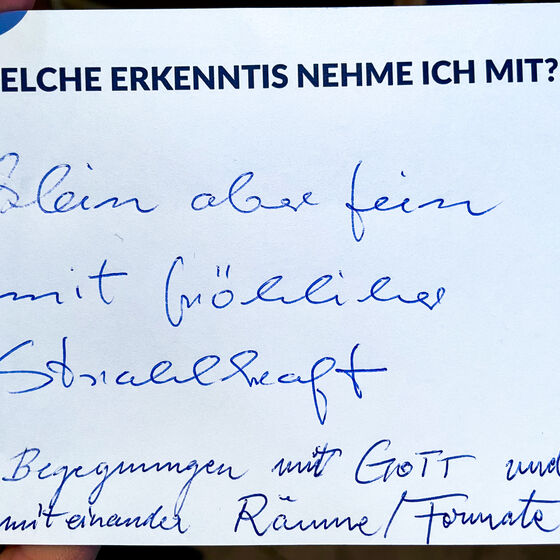 ELCHE ERKENNTIS NEHME ICH MIT?
Klein aber fein
mit fröhlicher
Strahlkraft
Begegnungen mit GOTT und
miteinander Räume/Formate